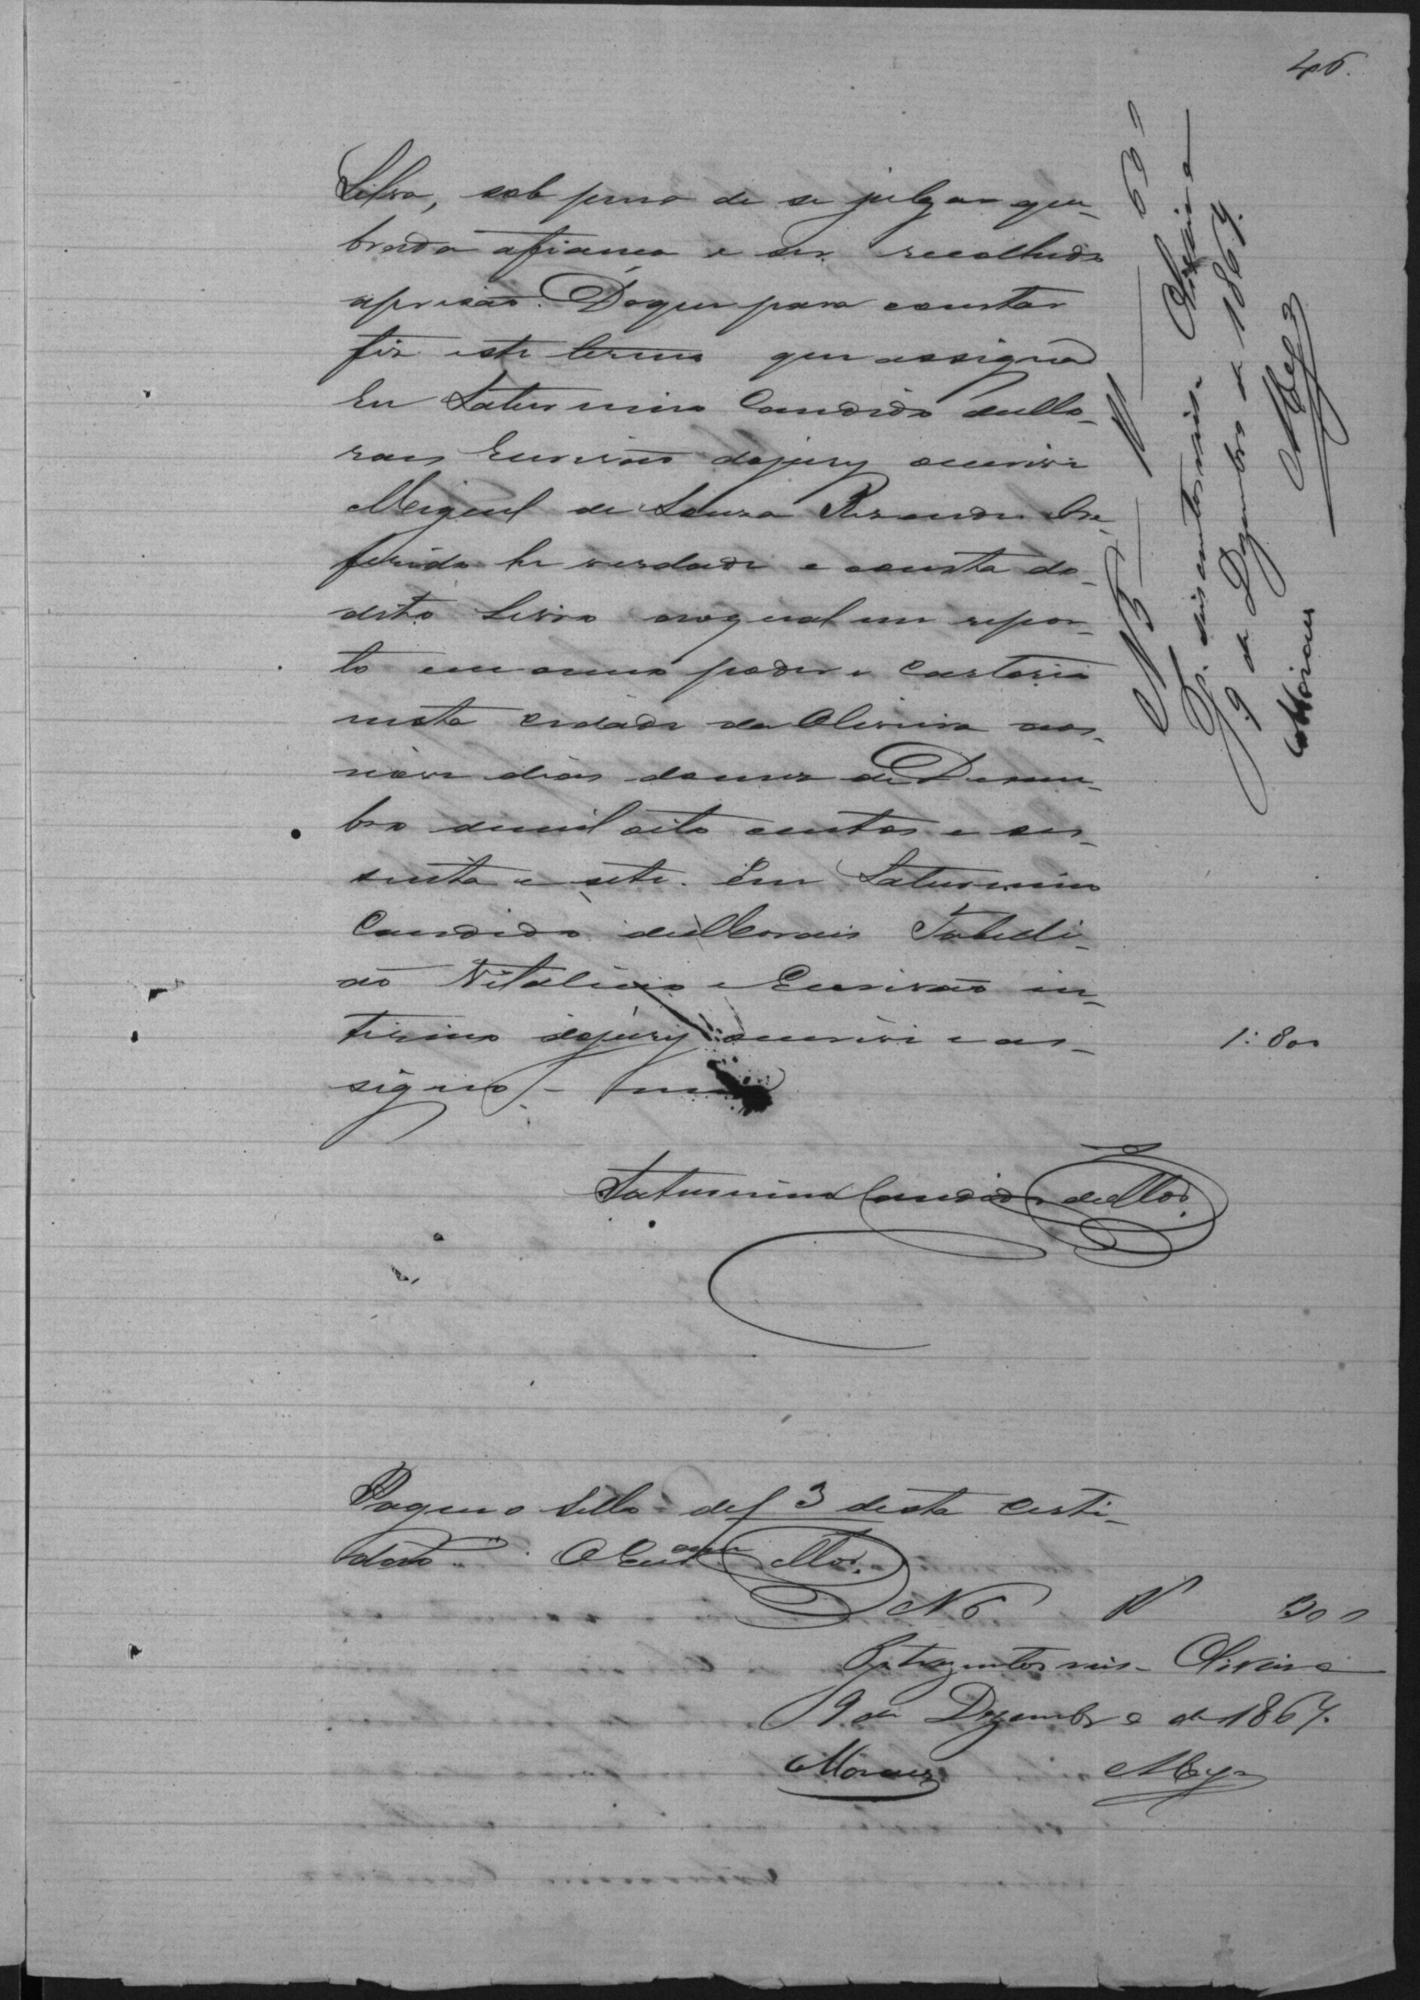 46.
Silva, sob pena de se julgar que-
brada afiança e ser recolhido
aprisão. Doque para constar
fiz este termo que assigna
Eu Saturnino Candido deMo-
raes Escrivão dojury escrivi
Miguel de Souza Rezende. Ore-
ferido he verdade e consta do-
dito Livro aoqual me repor-
to em meo poder e Cartorio
nesta cidade da Oliveira aos
nove dias domez de Desem-
bro demil oito centos e ses-
senta e sete. Eu Saturnino
Candido deMoraes Tabeli-
ão Vitalicio e Escrivão in-
tirino dojury escrivi e as-
signo.
1:800
Saturnino Candido deMor.
Pagou o Sello de f 3 desta certi-
dão. O Escrivam Mor.
N 6 R 300
Gs. tresentos reis. Oliveira
9 de Dezembro de 1867.
Moraes Mez
N 5 R 600
Gs. seis centos reis Oliveira
9 de Dezembro de 1867.
Moraes Mez